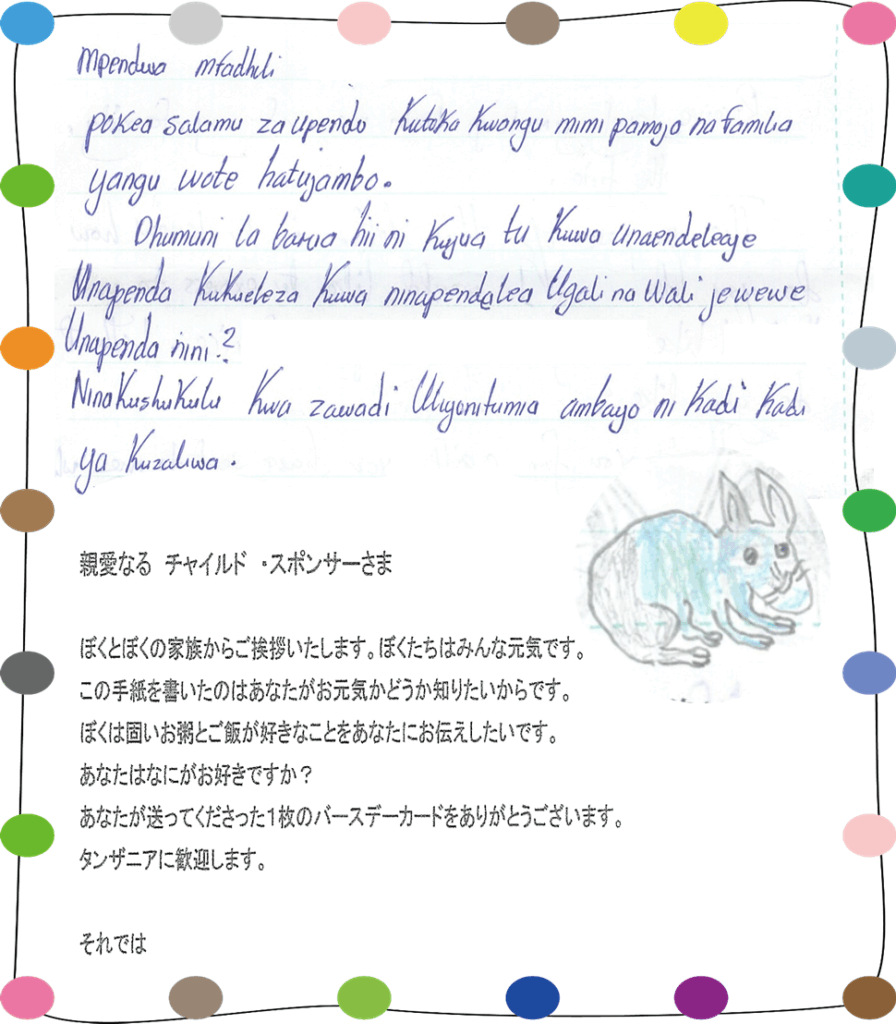 Mpendwa mfadhili
pokea salamu za upendo Kutoka Kwangu mimi pamojo na familia
yangu wote hatujambo.
Dhumuni la barua hii ni Kujua tu Kuwa unaendeleaje
Unapenda Kukueleza Kuwa ninapendelea Ugali na Wali je wewe
Unapenda nini?
NinaKushuKulu Kwa zawadi Uliyonitumia ambayo ni Kadi Kadi
ya Kuzaliwa.
親愛なる チャイルド ・スポンサーさま
ぼくとぼくの家族からご挨拶いたします。ぼくたちはみんな元気です。
この手紙を書いたのはあなたがお元気かどうか知りたいからです。
ぼくは固いお粥とご飯が好きなことをあなたにお伝えしたいです。
あなたはなにがお好きですか？
あなたが送ってくださった1枚のバースデーカードをありがとうございます。
タンザニアに歓迎します。
それでは